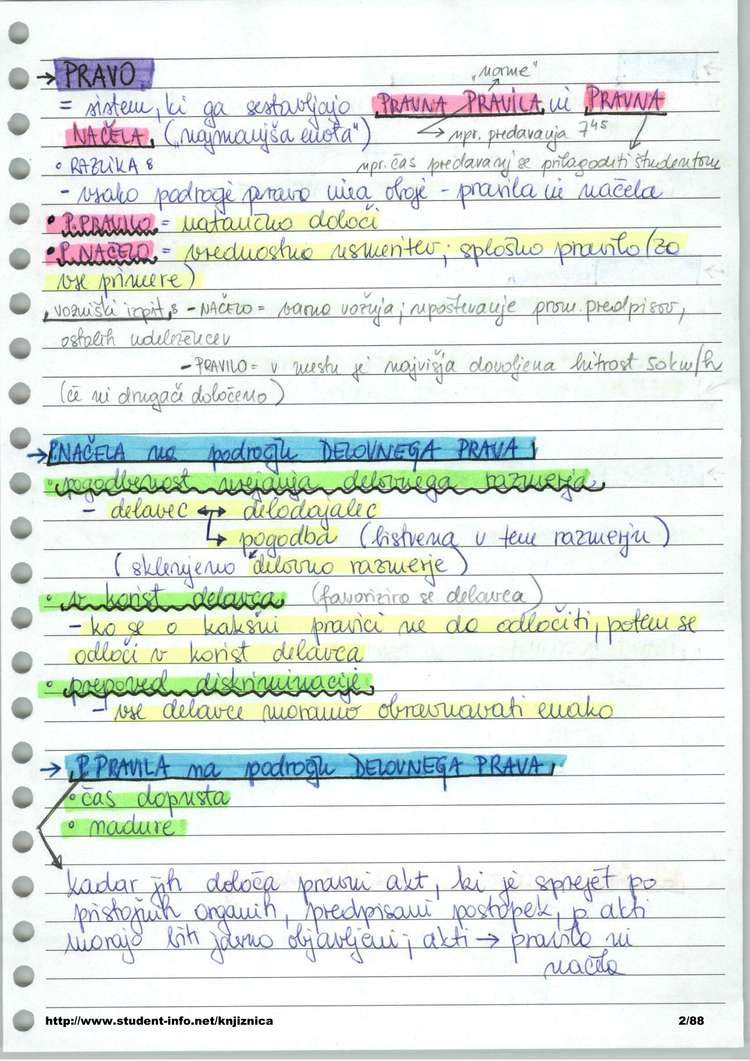 → PRAVO
„norme“
= sistem, ki ga sestavljajo PRAVNA PRAVILA in PRAVNA
NAČELA („najmanjša enota“) → npr. predavanja 7⁴⁵
• RAZLIKA: npr. čas predavanj se prilagoditi študentom
- vsako področje prava ima oboje - pravila in načela
• P. PRAVILO = natančno določi
• P. NAČELO = vrednostno usmeritev; splošno pravilo (za
vse primere)
vozniški izpit: - NAČELO = varno vožnja; upoštevanje prom. predpisov,
ostalih udeležencev
- PRAVILO = v mestu je najvišja dovoljena hitrost 50km/h
(če ni drugače določeno)
→ P. NAČELA na področju DELOVNEGA PRAVA
• pogodbenost urejanja delovnega razmerja
- delavec ↔ delodajalec
↳ pogodba (bistvena v tem razmerju)
(sklenjeno delovno razmerje)
• v korist delavca (favorizira se delavca)
- ko se o kakšni pravici ne da odločiti, potem se
odloči v korist delavca
• prepoved diskriminacije
- vse delavce moramo obravnavati enako
→ P. PRAVILA na področju DELOVNEGA PRAVA
• čas dopusta
• nadure
kadar jih določa pravni akt, ki je sprejet po
pristojnih organih, predpisani postopek, p. akti
morajo biti javno objavljeni; akti → pravila in
načela
http://www.student-info.net/knjiznica 2/88